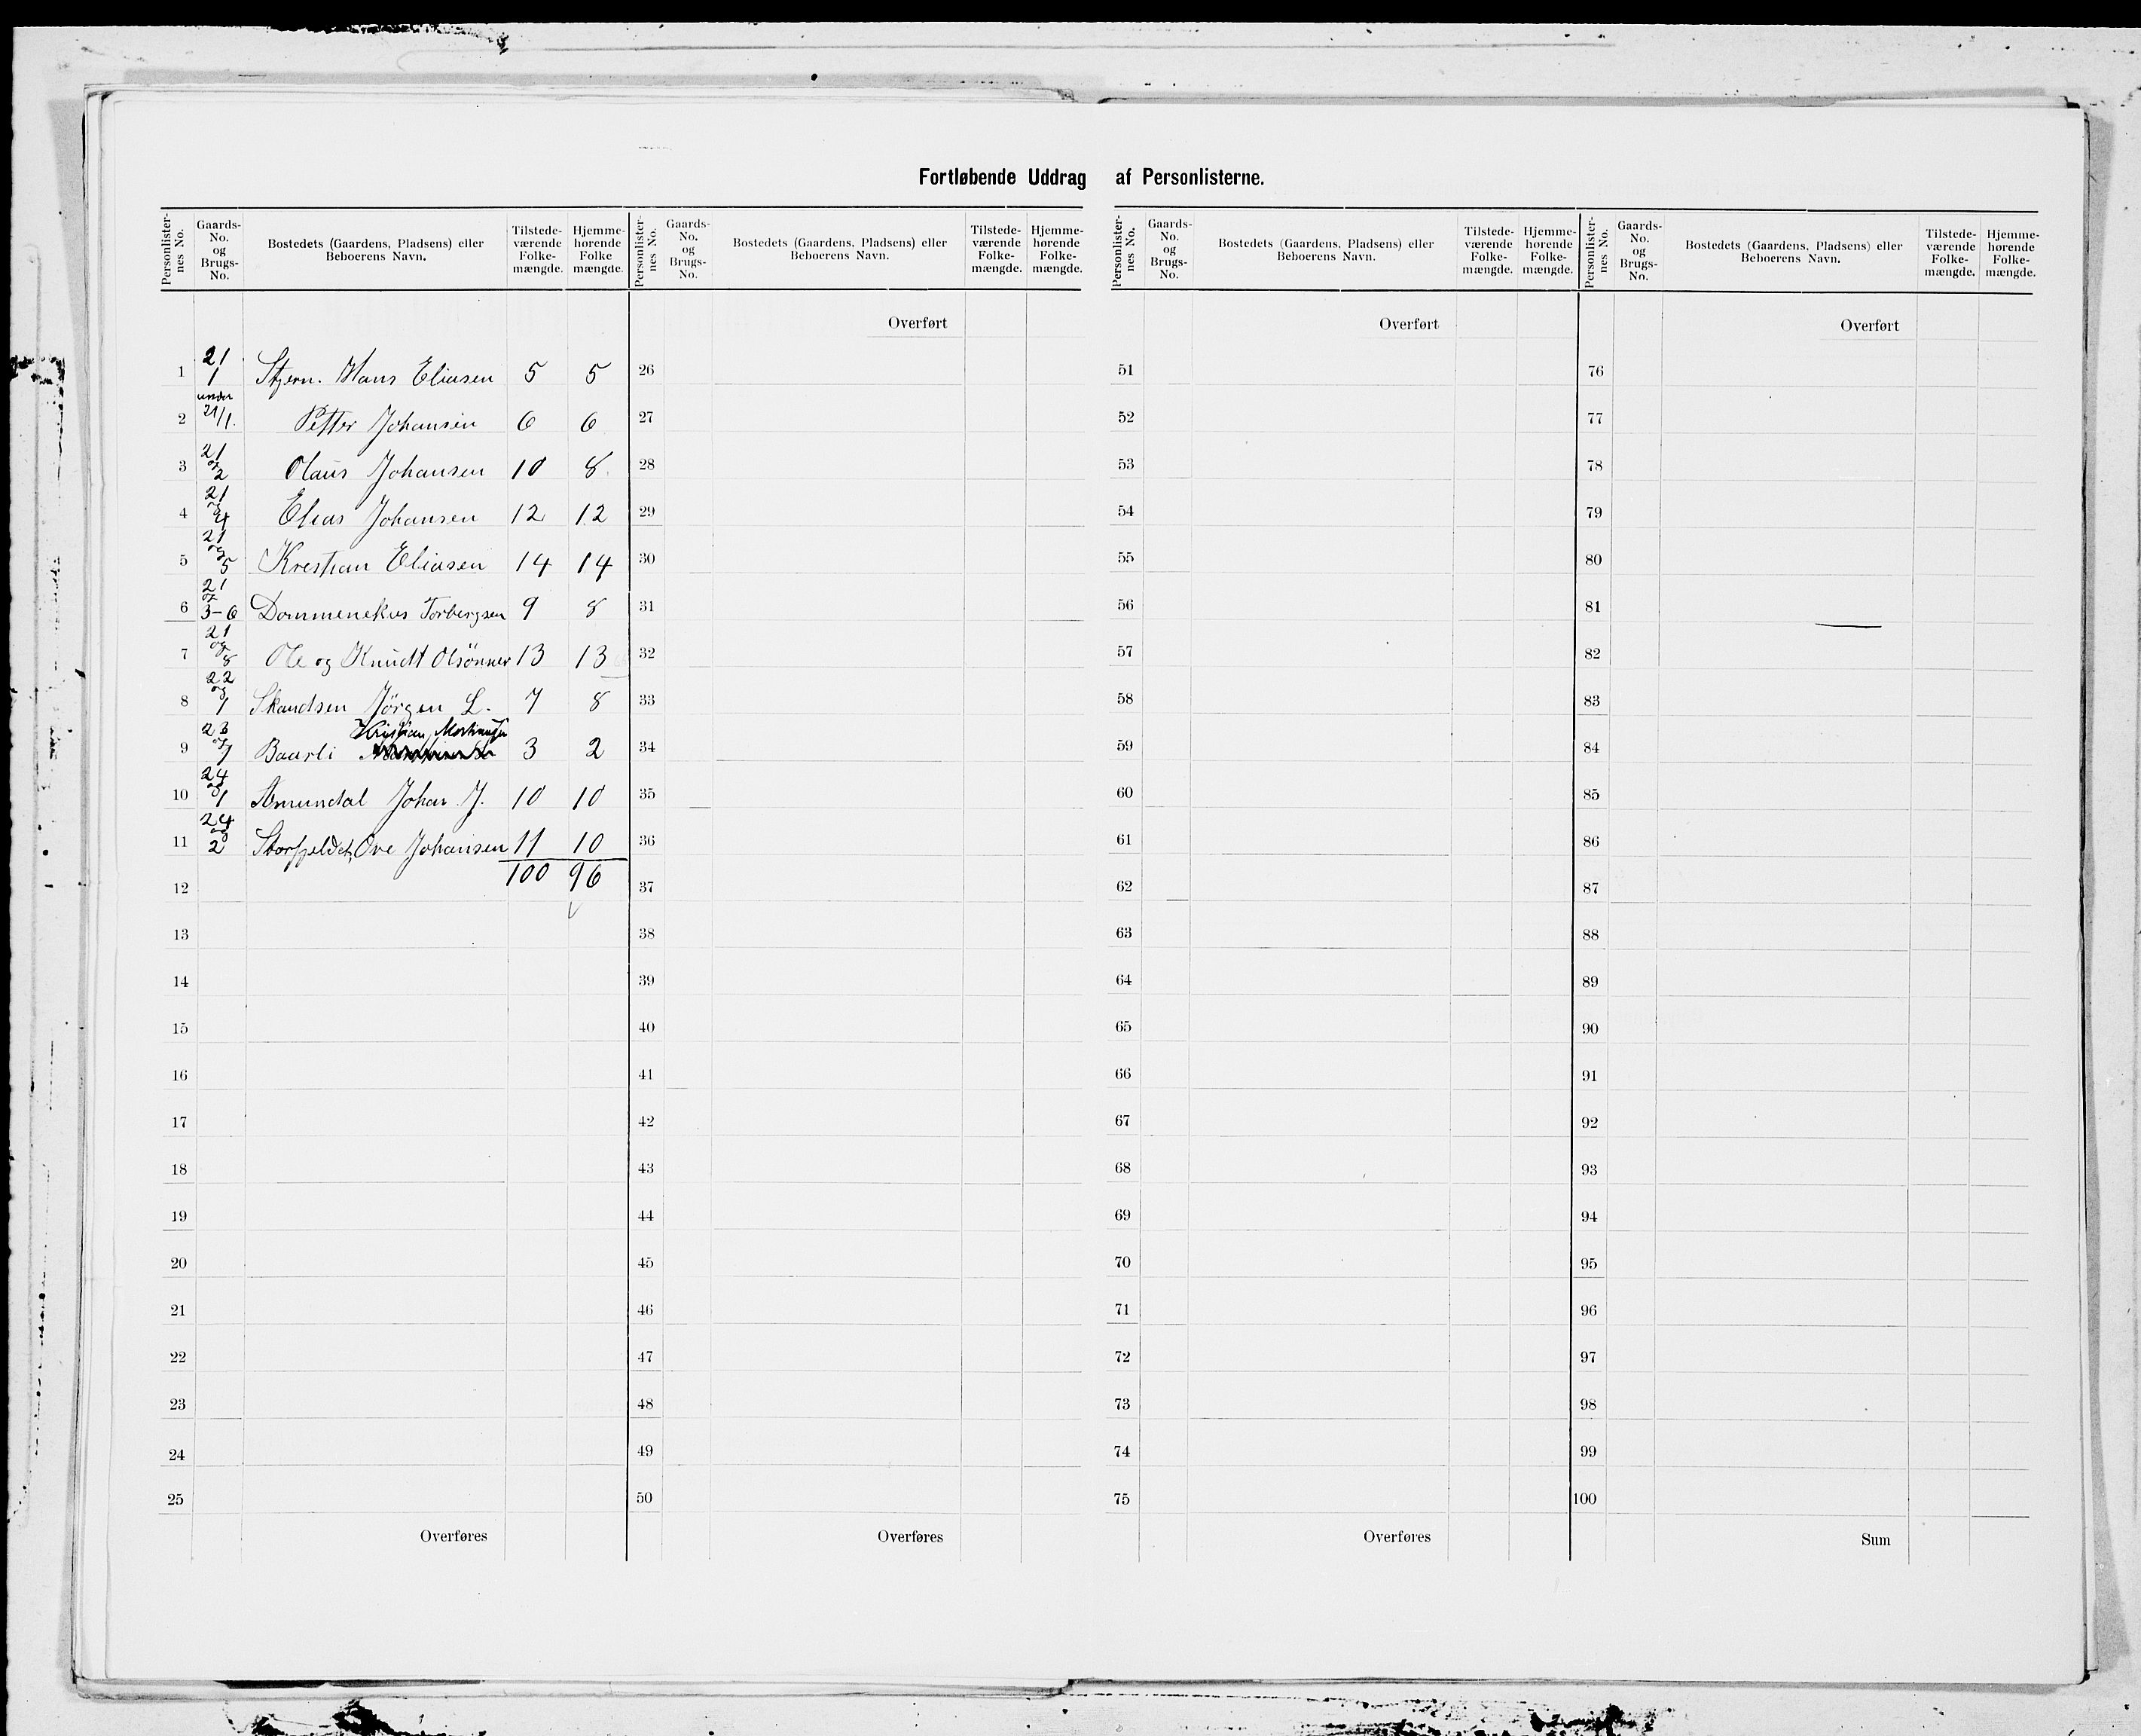 Fortløbende Uddrag af Personlisterne.
Personlisternes No. Gaards-No. og Brugs-No. Bostedets (Gaardens, Pladsens) eller Beboerens Navn. Tilstedeværende Folkemængde. Hjemmehørende Folkemængde.
Personlisternes No. Gaards-No. og Brugs-No. Bostedets (Gaardens, Pladsens) eller Beboerens Navn. Tilstedeværende Folkemængde. Hjemmehørende Folkemængde.
Personlisternes No. Gaards-No. og Brugs-No. Bostedets (Gaardens, Pladsens) eller Beboerens Navn. Tilstedeværende Folkemængde. Hjemmehørende Folkemængde.
Personlisternes No. Gaards-No. og Brugs-No. Bostedets (Gaardens, Pladsens) eller Beboerens Navn. Tilstedeværende Folkemængde. Hjemmehørende Folkemængde.
Overført Overført Overført
1 21 1 Stjern. Hans Eliasen 5 5 26 51 76
2 under 21/1. Petter Johansen 6 6 27 52 77
3 21 og 2 Olaus Johansen 10 8 28 53 78
4 21 og 4 Elias Johansen 12 12 29 54 79
5 21 og 5 Krestian Eliasen 14 14 30 55 80
6 21 og 3-6 Dommenekus Torbergsen 9 8 31 56 81
7 21 og 8 Ole og Knudt Olsönner 13 13 32 57 82
8 22 og 1 Skandsen Jörgen L. 7 8 33 58 83
9 23 og 1 Baarli Kristian 3 2 34 59 84
10 24 og 1 Amundal Johan J. 10 10 35 60 85
11 24 og 2 Storfjeldet, Ove Johansen 11 10 36 61 86
12 100 96 37 62 87
13 38 63 88
14 39 64 89
15 40 65 90
16 41 66 91
17 42 67 92
18 43 68 93
19 44 69 94
20 45 70 95
21 46 71 96
22 47 72 97
23 48 73 98
24 49 74 99
25 50 75 100
Overføres Overføres Overføres Sum